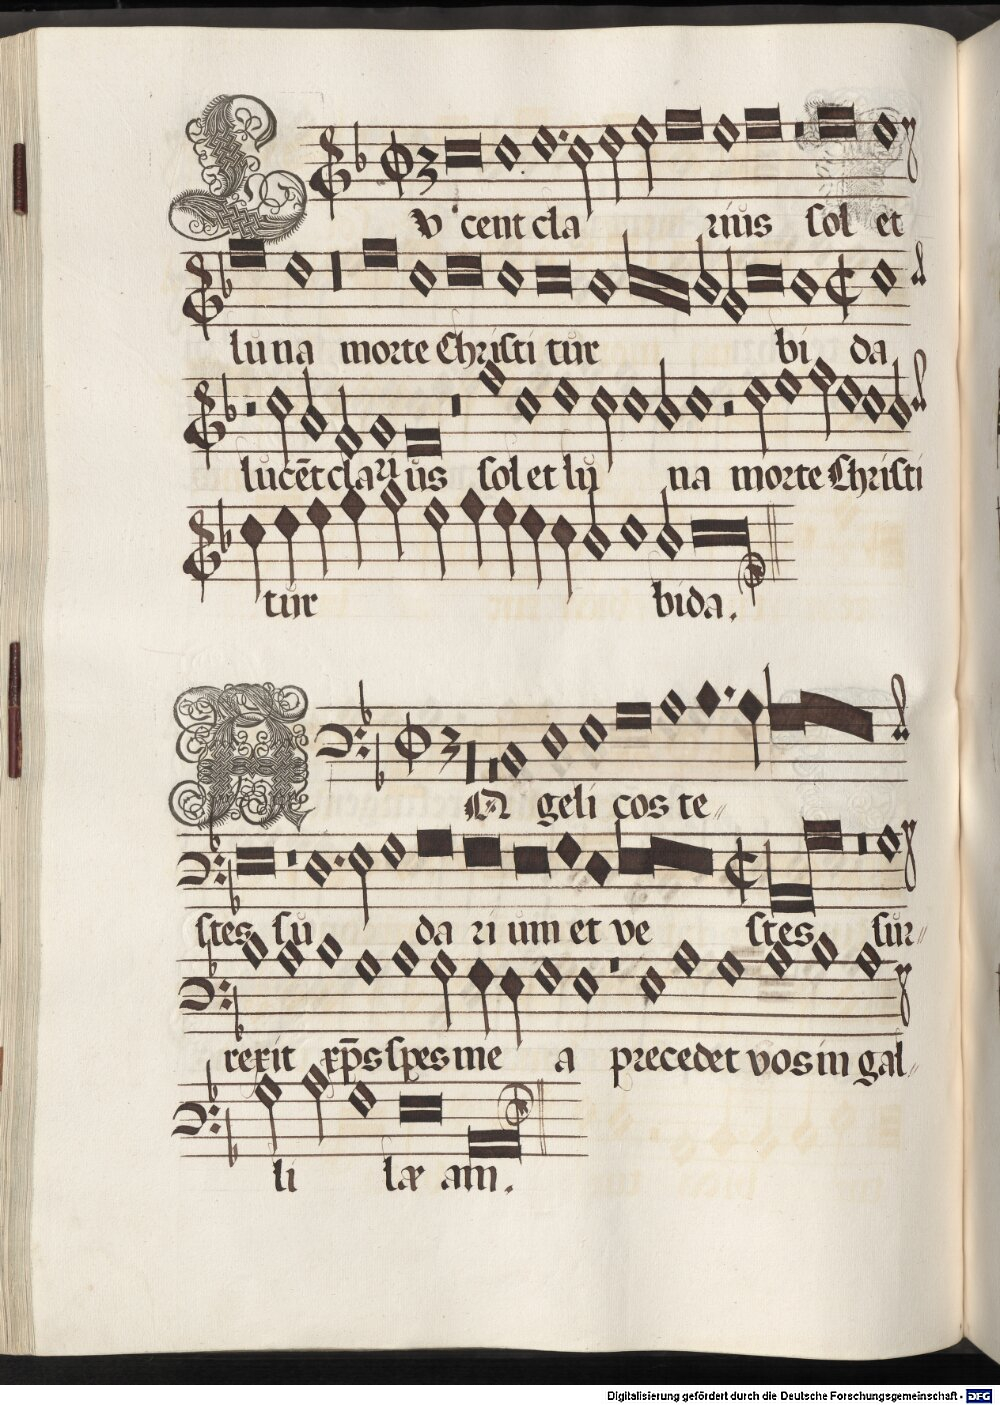 Lv cent cla rius sol et
luna morte Christi tur bi da
lucēt clarius sol et lu na morte Christi
tur bida.
Angeli cos te
stes su da ri um et ve stes sur
rexit xp̄s spes me a precedet vos in gal
li læ am.
Digitalisierung gefördert durch die Deutsche Forschungsgemeinschaft - DFG